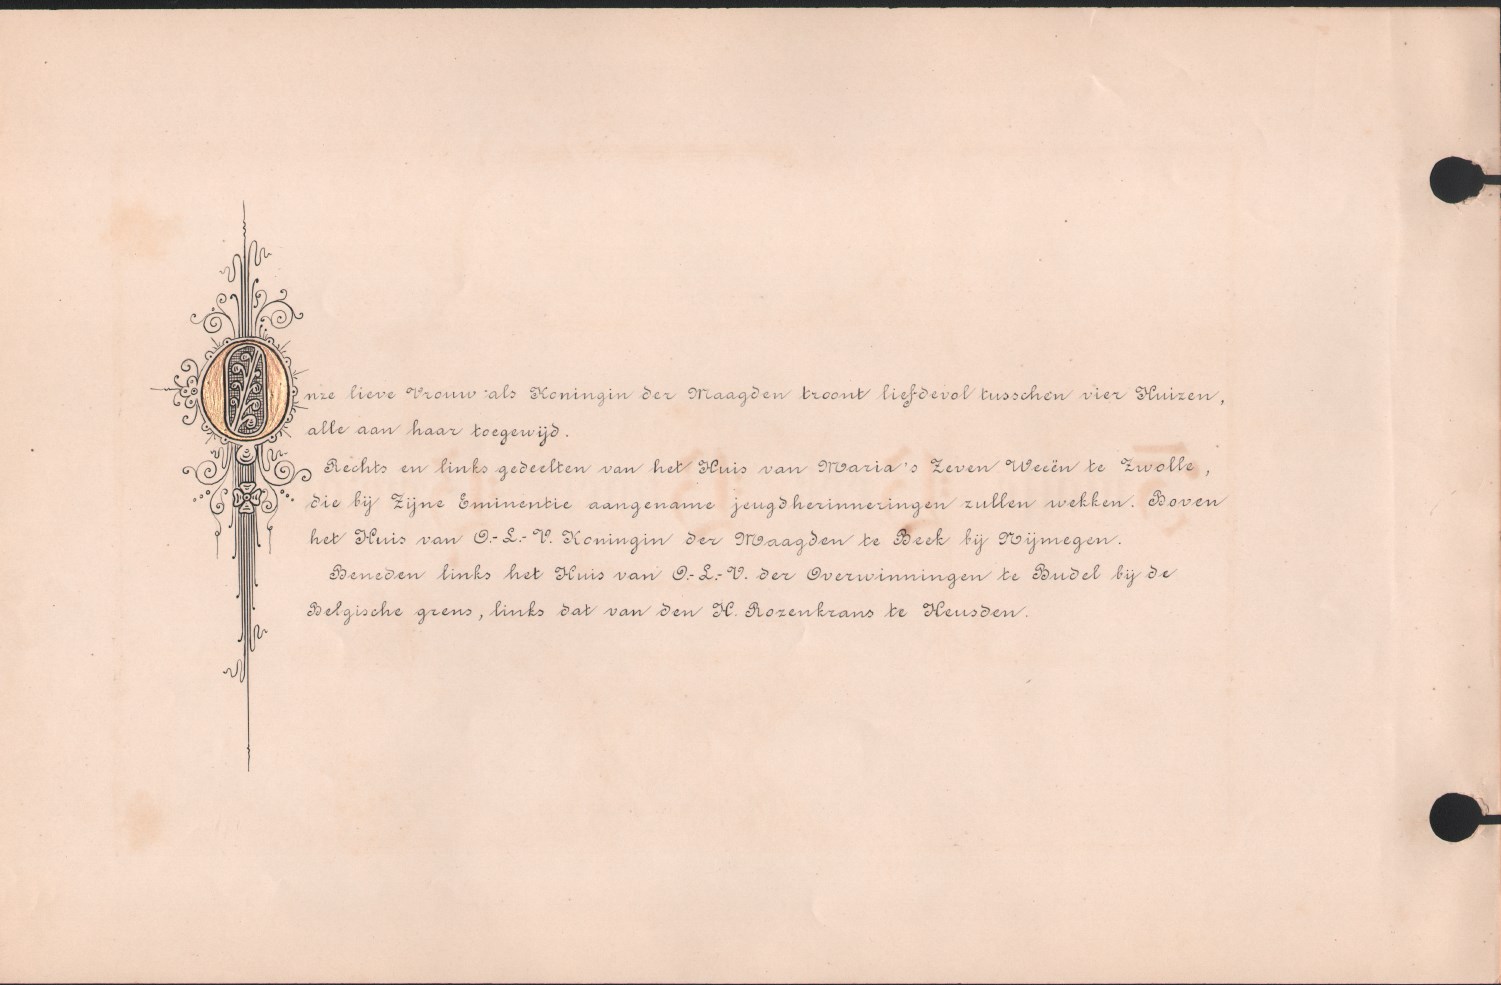 Onze lieve Vrouw als Koningin der Maagden troont liefdevol tusschen vier Huizen,
alle aan haar toegewijd.
Rechts en links gedeelten van het Huis van Maria's Zeven Weeën te Zwolle,
die bij Zijne Eminentie aangename jeugdherinneringen zullen wekken. Boven
het Huis van O.-L.-V. Koningin der Maagden te Beek bij Nijmegen.
Beneden links het Huis van O.-L.-V. der Overwinningen te Budel bij de
Belgische grens, links dat van den H. Rozenkrans te Heusden.